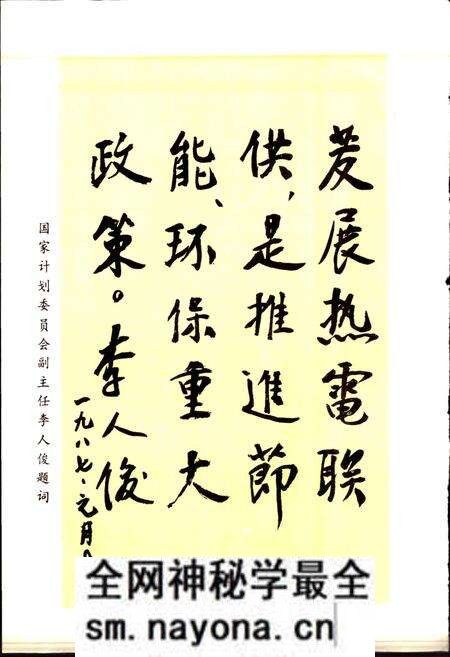 发展热電联
供,是推進節
能、环保重大
政策。李人俊
一九八七、元月
国家计划委员会副主任李人俊题词
全网神秘学最全
sm.nayona.cn